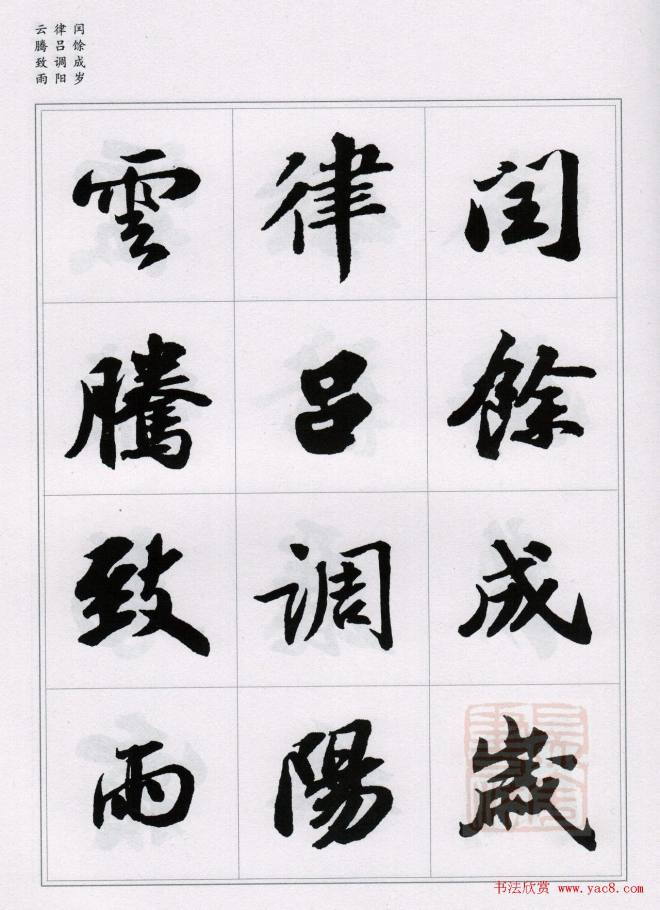 闰馀成岁
律吕调阳
云腾致雨
闰馀成歲
律吕调陽
雲騰致雨
书法欣赏 www.yac8.com